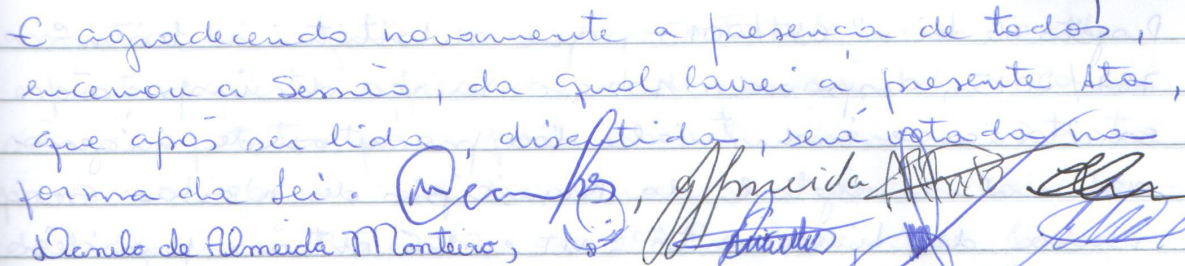 E agradecendo novamente a presença de todos,
encerrou a Sessão, da qual lavrei a presente Ata,
que após ser lida, discutida, será votada na
forma da Lei. Almeida
Danilo de Almeida Monteiro,